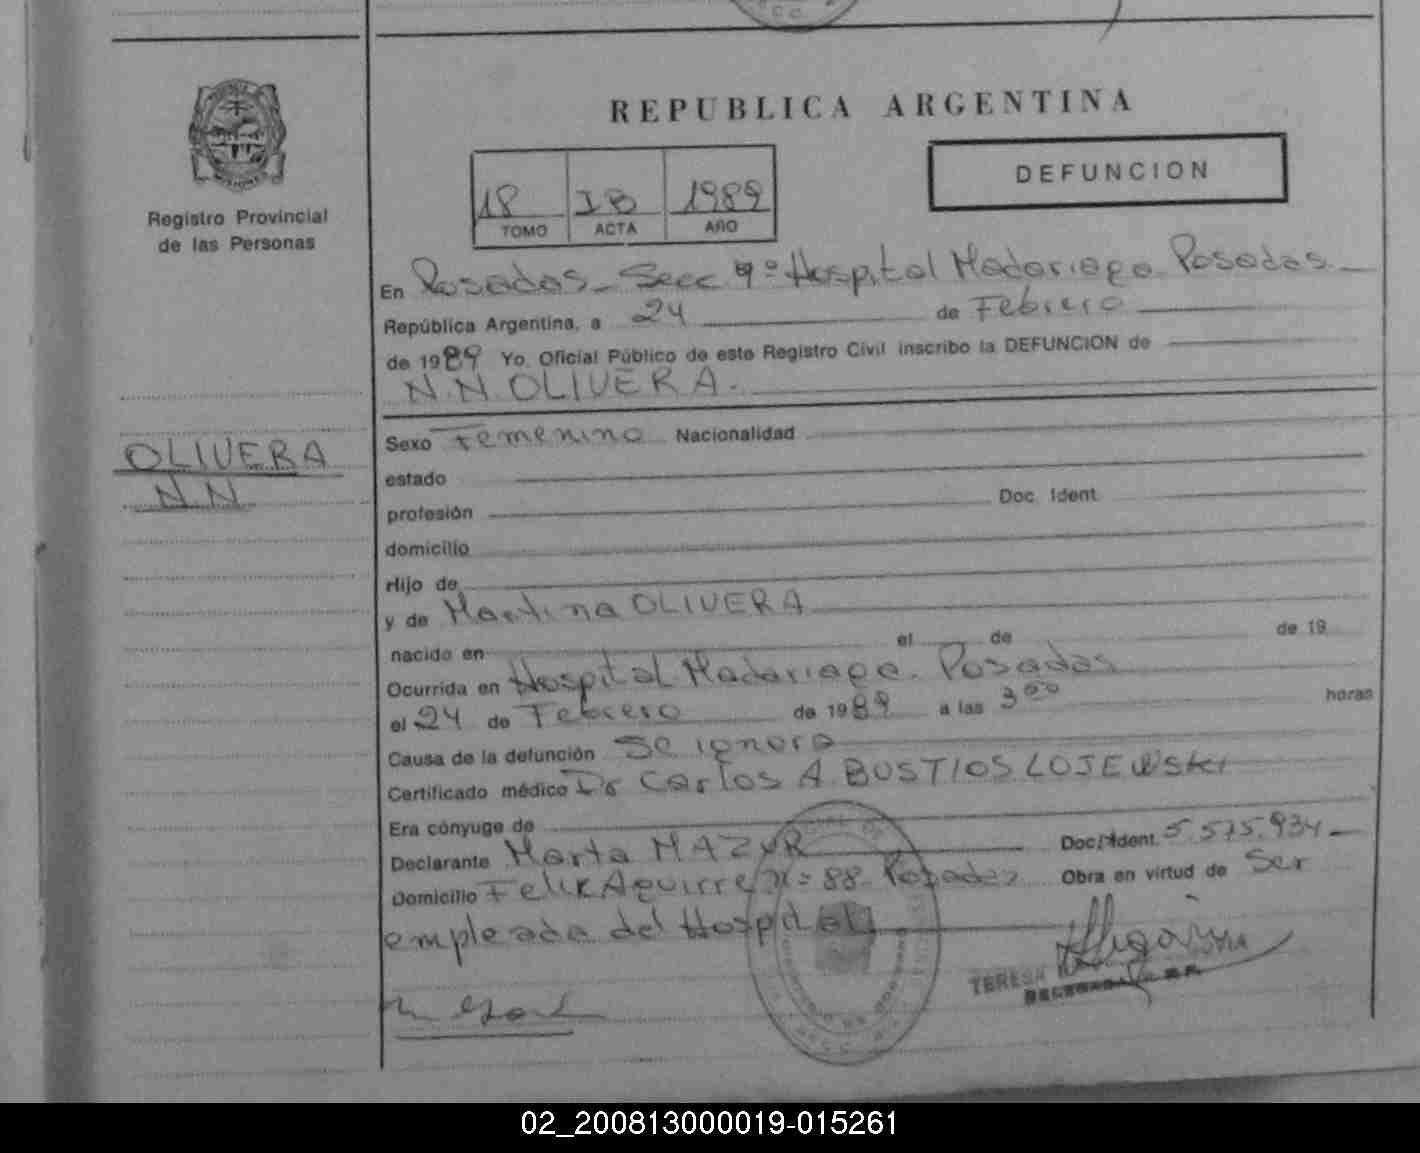 REPUBLICA ARGENTINA
DEFUNCION
Registro Provincial
de las Personas
18 IB 1989
TOMO ACTA AÑO
En Posadas - Secc 9º Hospital Madariaga Posadas
República Argentina, a 24 de Febrero
de 1989 Yo, Oficial Público de este Registro Civil inscribo la DEFUNCION de
N.N. OLIVERA.
OLIVERA
N.N
Sexo Femenino Nacionalidad
estado
profesión Doc. Ident.
domicilio
Hijo de
y de Martina OLIVERA
nacido en el de de 19
Ocurrida en Hospital Madariaga. Posadas
el 24 de Febrero de 1989 a las 3 00 horas
Causa de la defunción Se ignora
Certificado médico Dr Carlos A. BUSTIOS LOJEWski
Era cónyuge de
Declarante Marta MAZUR Doc. Ident. 5.575.934
Domicilio Felix Aguirre nº 88 Posadas Obra en virtud de Ser
empleada del Hospital
TERESA
02_200813000019-015261